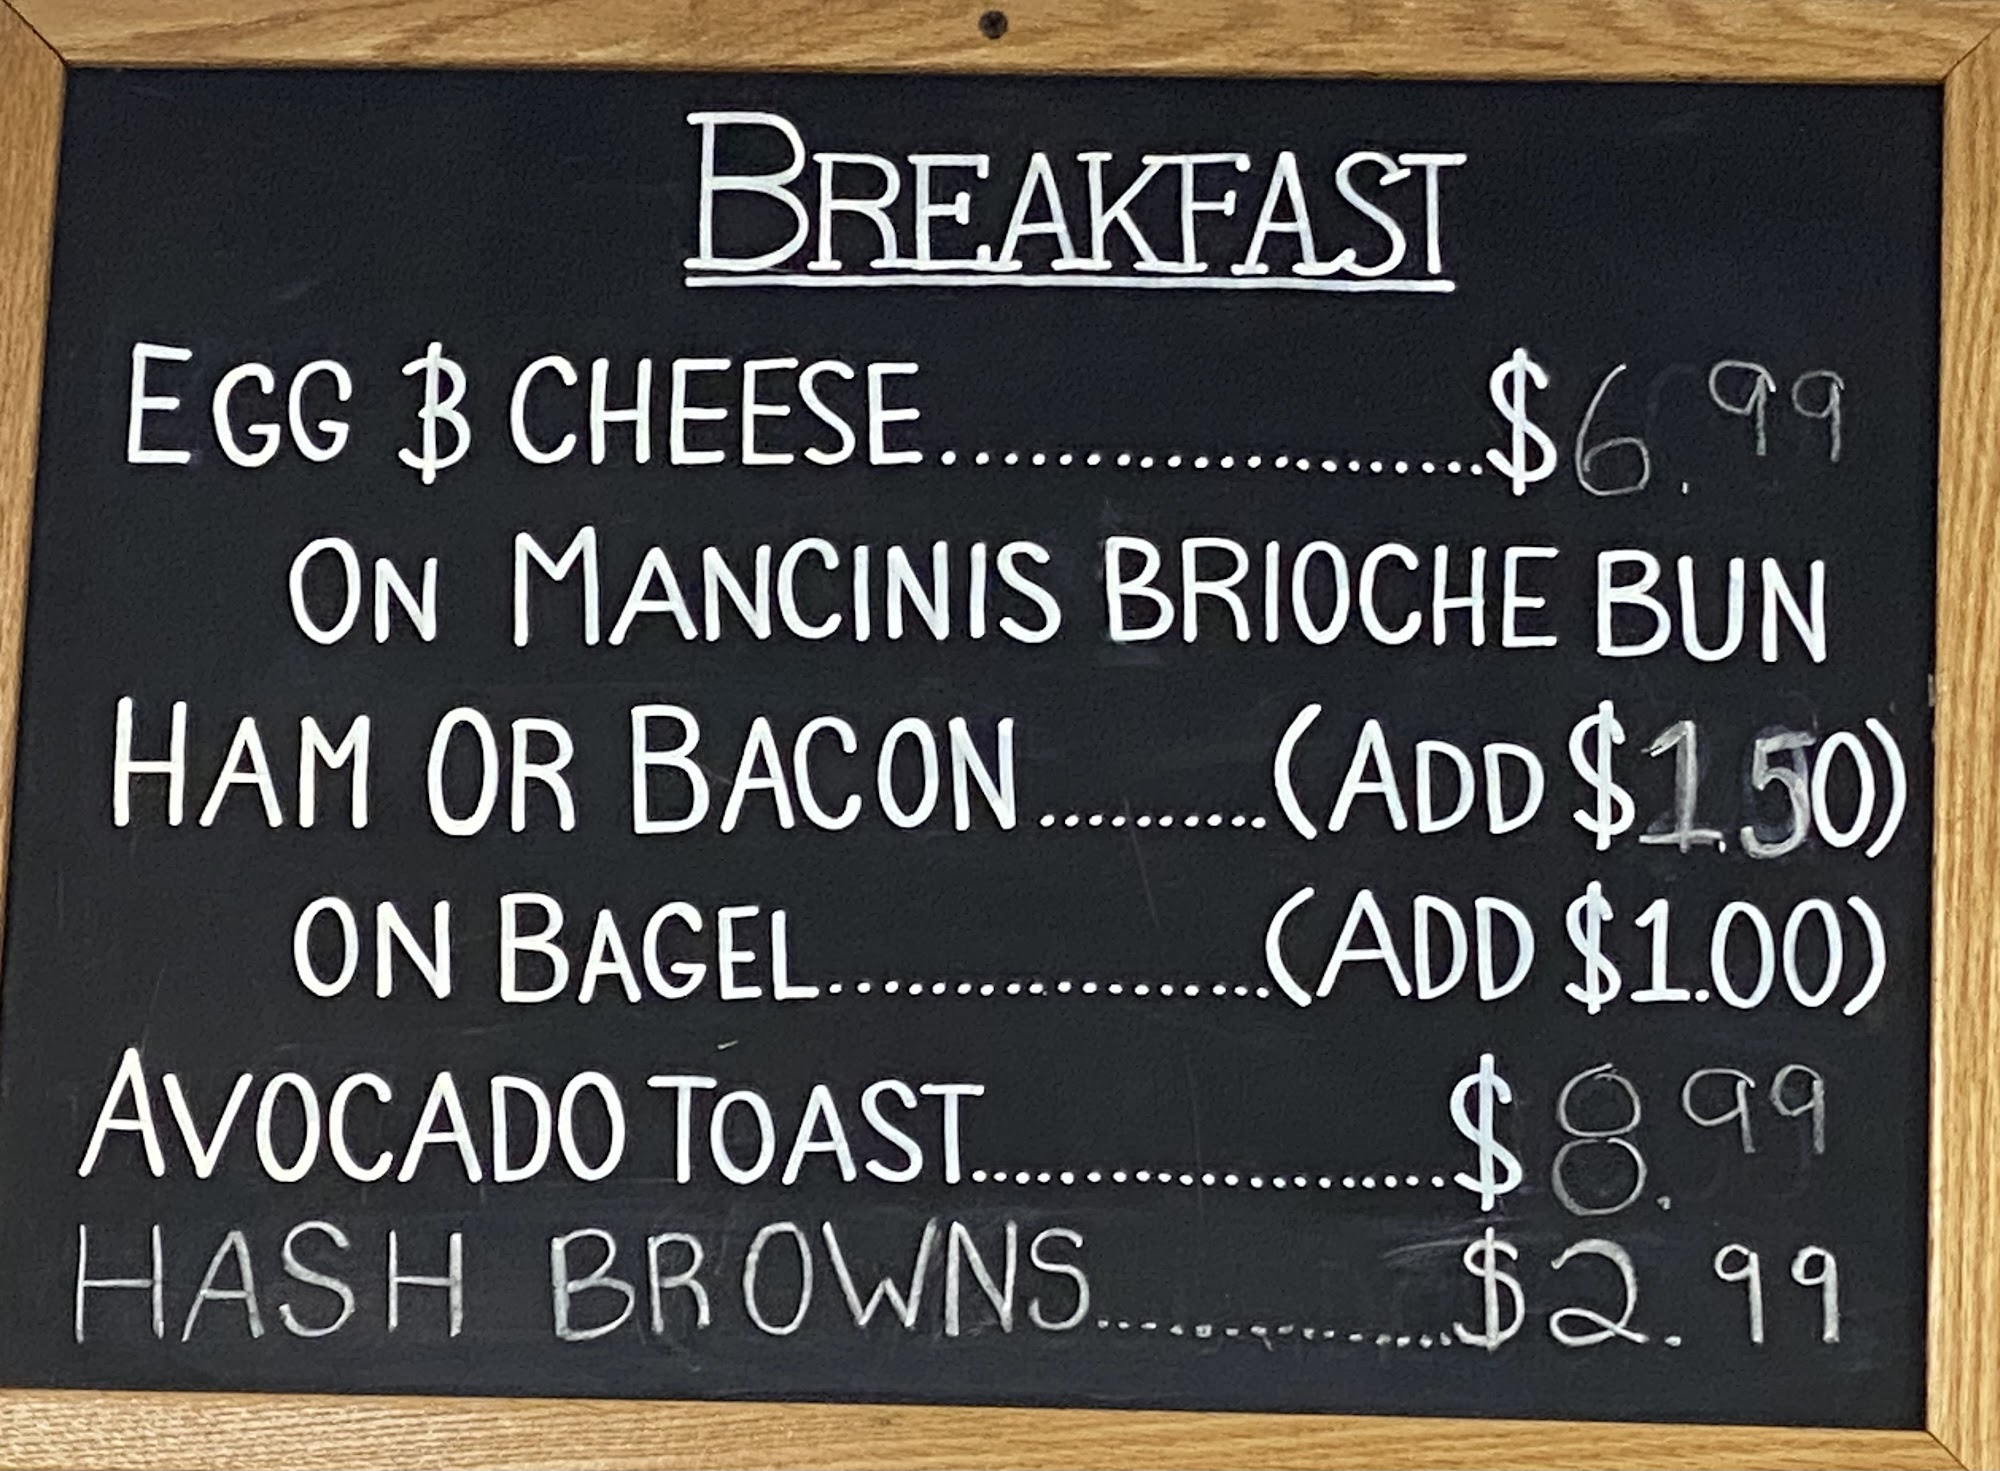 BREAKFAST
EGG & CHEESE....................$6.99
ON MANCINIS BRIOCHE BUN
HAM OR BACON..........(ADD $1.50)
ON BAGEL..................(ADD $1.00)
AVOCADO TOAST..................$8.99
HASH BROWNS..................$2.99